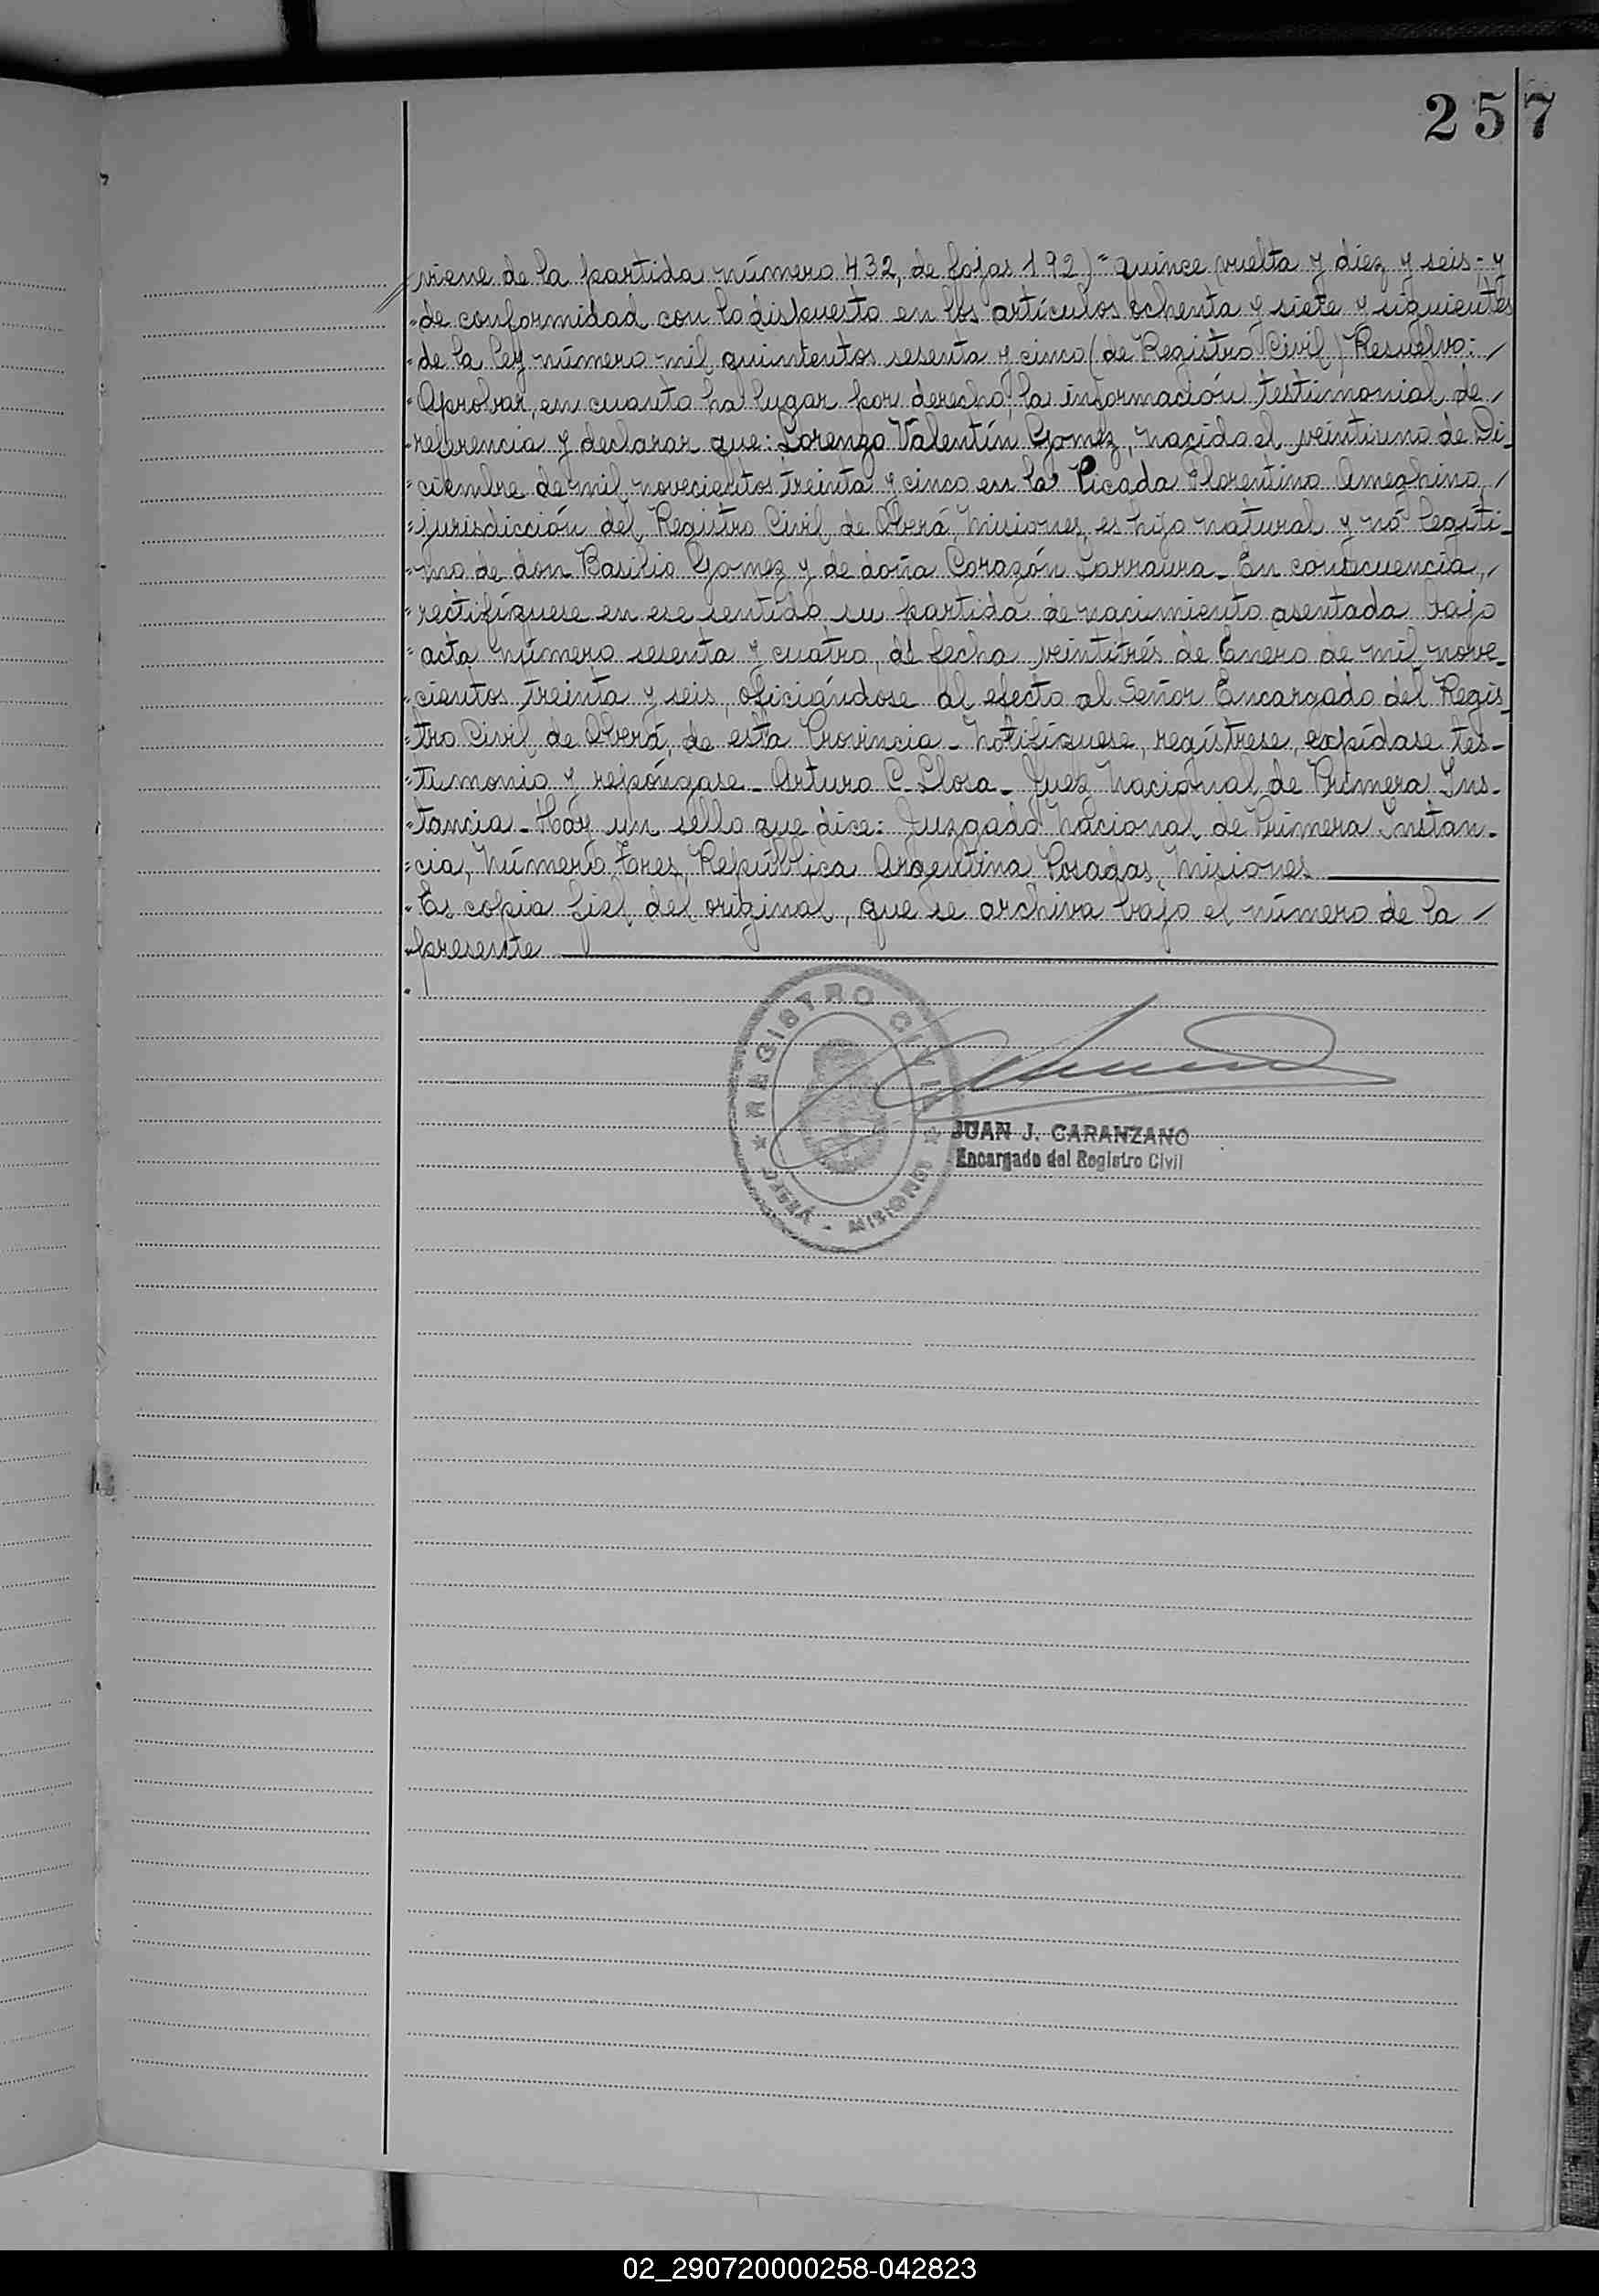 257
viene de la partida número 432, de fojas 192)" quince vuelta y diez y seis; y
"de conformidad con lo dispuesto en los artículos ochenta y siete y siguientes
"de la ley número mil quinientos sesenta y cinco (de Registro Civil) Resuelvo: /
"Aprobar, en cuanto ha lugar por derecho, la información testimonial de /
"referencia y declarar que: Lorenzo Valentín Gomez, nacido el veintiuno de Di_
"ciembre de mil novecientos treinta y cinco en la Picada Florentino Ameghino, /
"jurisdicción del Registro Civil de Oberá, Misiones, es hijo natural y nó legíti_
"mo de don Basilio Gomez y de doña Corazón Larraura_ En consecuencia, /
"rectifíquese en ese sentido su partida de nacimiento asentada bajo
"acta número sesenta y cuatro, de fecha veintitrés de Enero de mil nove_
"cientos treinta y seis, oficiándose al efecto al Señor Encargado del Regis_
"tro Civil de Oberá, de esta Provincia_ Notifíquese, regístrese, expídase tes_
"timonio y repóngase_ Arturo C. Llosa_ Juez Nacional de Primera Ins_
"tancia_ Hay un sello que dice: Juzgado Nacional de Primera Instan_
"cia, Número Tres, República Argentina Posadas, Misiones
"Es copia fiel del original, que se archiva bajo el número de la /
"presente
REGISTRO CIVIL
OBERÁ - MISIONES
JUAN J. CARANZANO
Encargado del Registro Civil
02_290720000258-042823